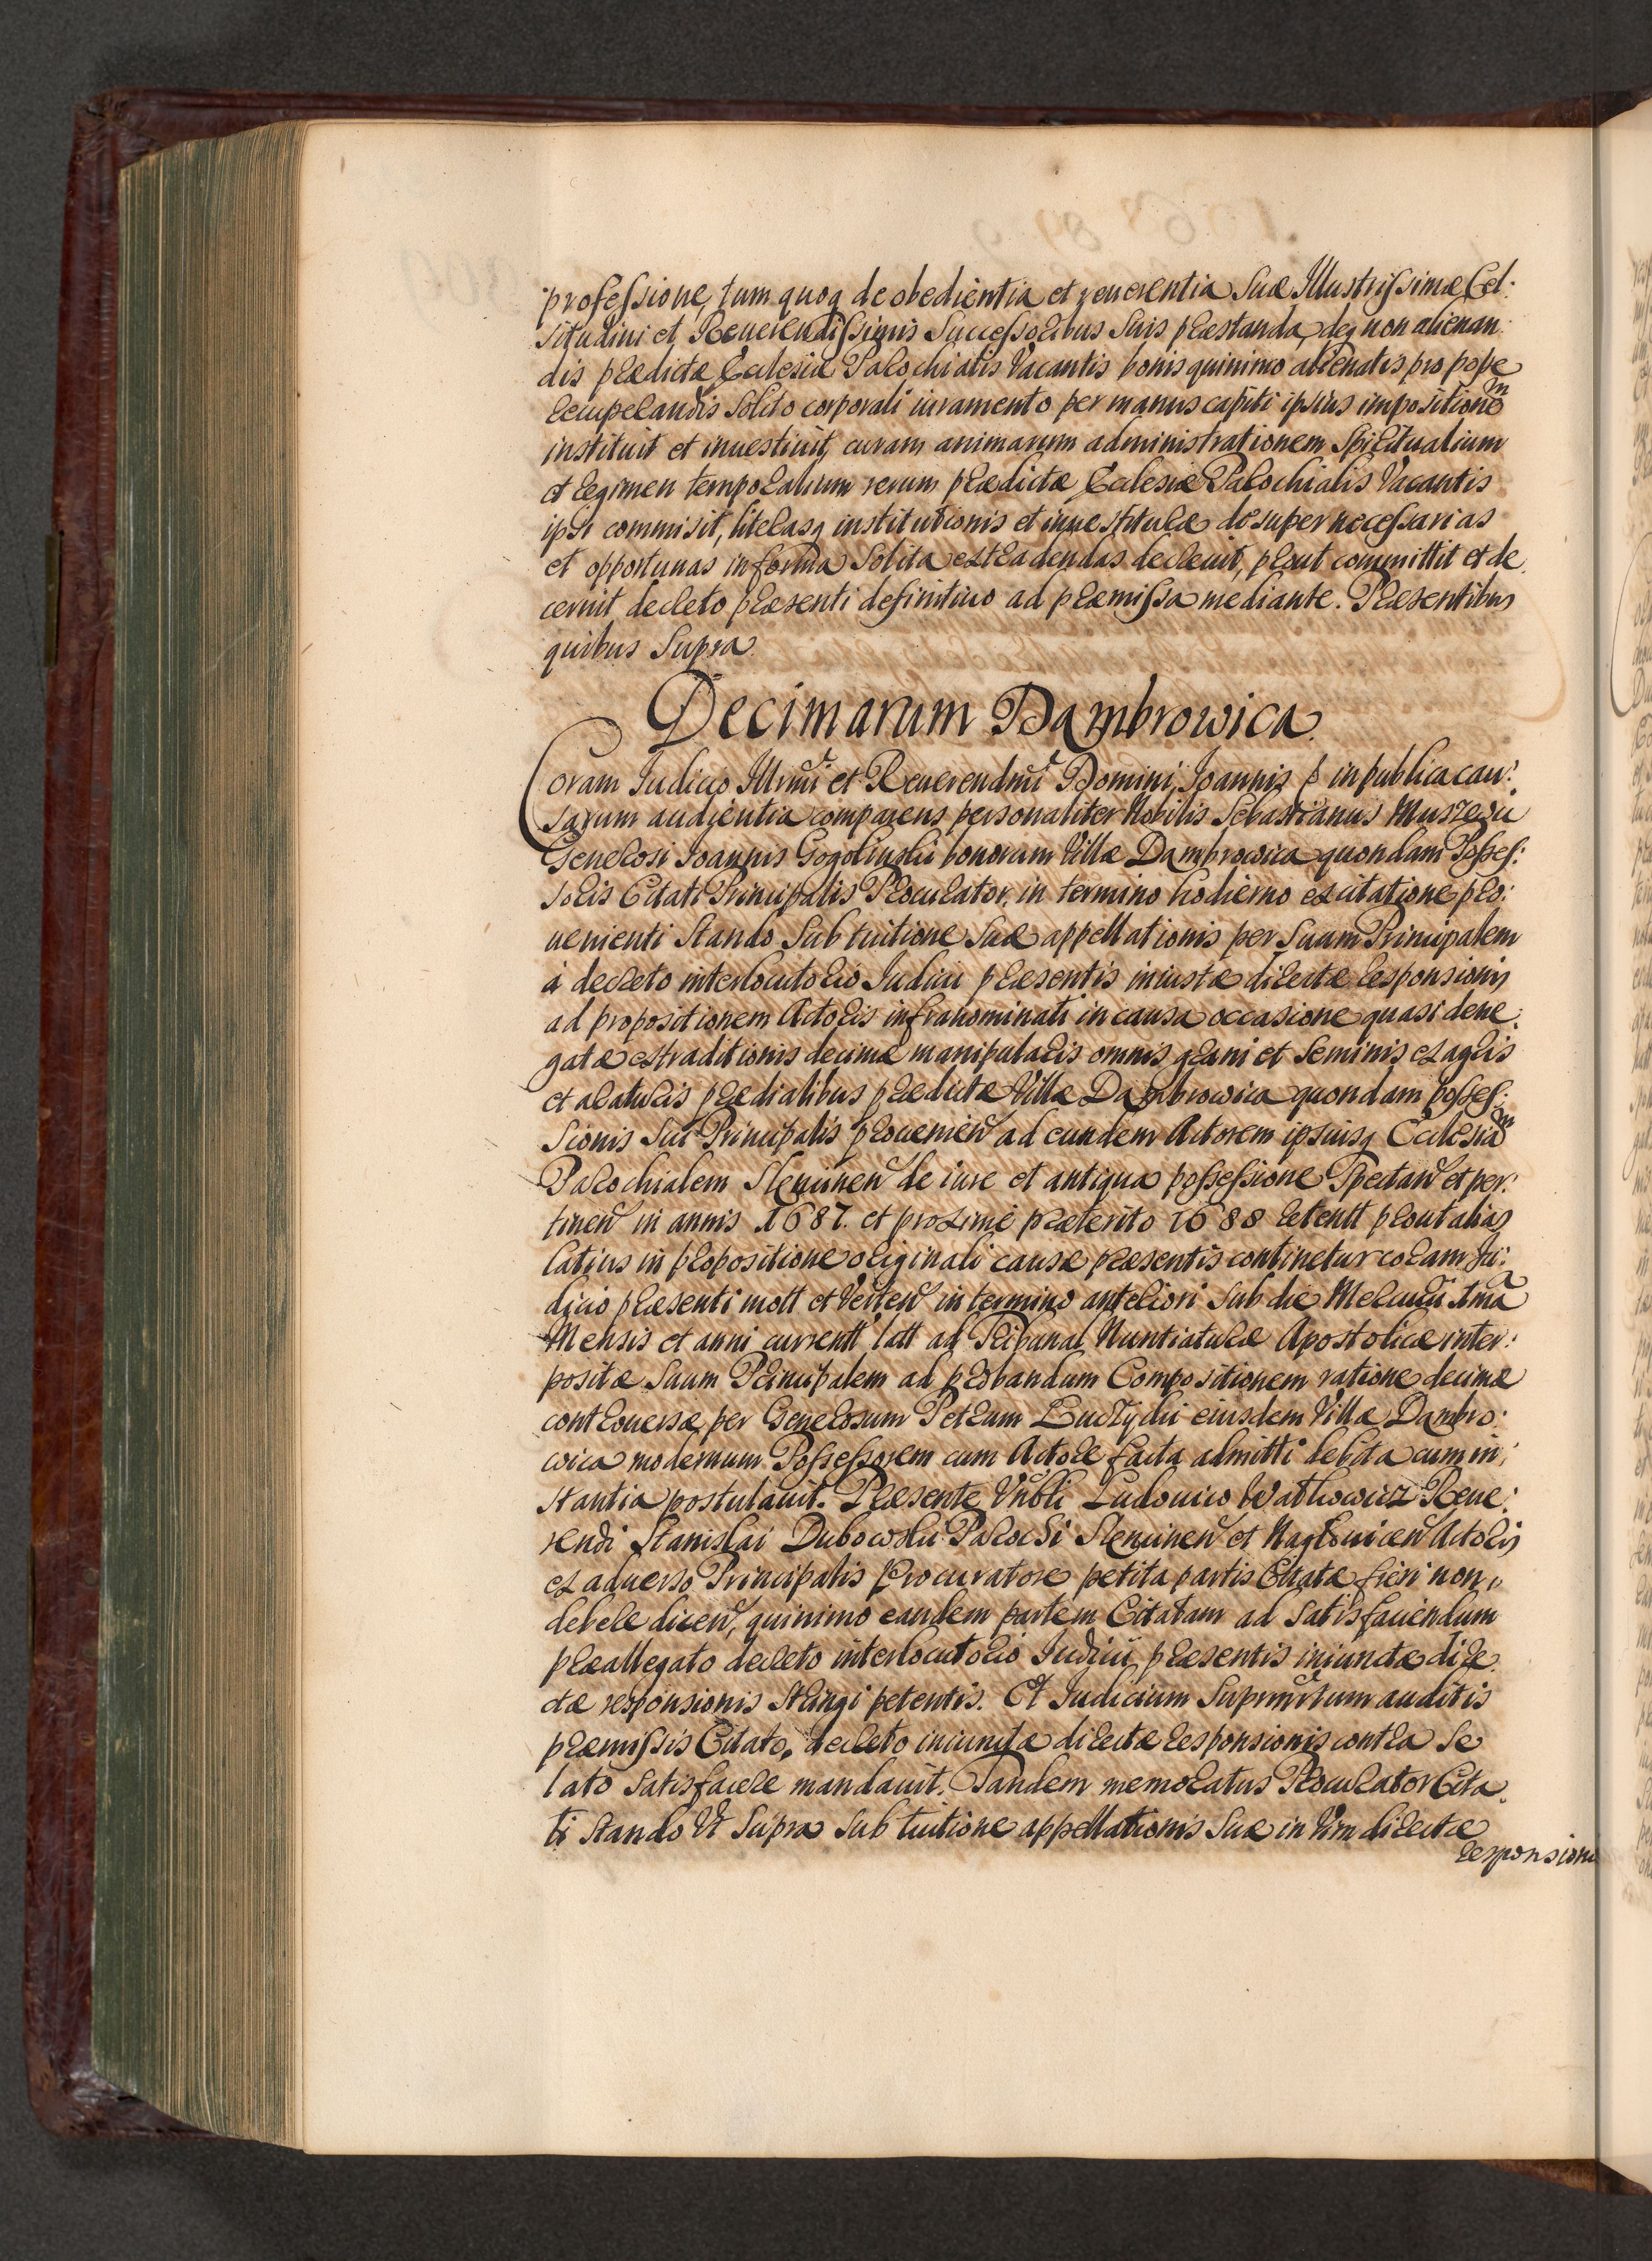 professione, tum quoq de obedientia et reuerentia Suæ Illustrissimæ Cel:
situdini et Reuerendissimis Successoribus Suis præstanda, deq non alienan:
dis prædictæ Ecclesiæ Parochialis Vacantis bonis quinimo alienatis pro posse
recuperandis Solito corporali iuramento per manus capiti ipsius impositionem
instituit et inuestiuit, curam animarum administrationem Spiritualium
et regimen temporalium rerum prædictæ Ecclesiæ Parochialis Vacantis
ipsi commisit, literasq institutionis et inuestituræ desuper necessarias
et opportunas in forma Solita extradendas decreuit, prout committit et de
cernit decreto præsenti definitiuo ad præmissa mediante. Præsentibus
quibus Supra
Decimarum Dambrowica.
Coram Iudicio Illrmi et Reuerendmi Domini, Ioannis p in publica cau:
sarum audientia comparens personaliter Nobilis Sebastianus
Generosi Ioannis Gogolinskii bonorum Villæ Dambrowica quondam Posses:
soris Citati Principalis Procurator, in termino hodierno ex citatione pro:
uenienti Stando Sub tuitione Suæ appellationis per Suum Principalem
à decreto interlocutorio Iudicii præsentis iniustæ directæ responsionis
ad propositionem Actoris infranominati in causa occasione quasi dene:
gatæ extraditionis decimæ manipularis omnis grani et Seminis ex agris
et araturis prædialibus prædictæ Villæ Dambrowica quondam posses:
Sionis Sui Principalis prouenien ad eundem Actorem ipsiusq Ecclesiam
Parochialem Slupinen de iure et antiqua possessione Spectan et per:
tinen in annis 1687. et proximè præterito 1688 retentt prout alias
latius in propositione originali causæ præsentis continetur coram Iu:
dicio præsenti mott et Verten in termino anteriori Sub die Mercurii
Mensis et anni currentt, latt ad Tribunal Nuntiaturæ Apostolicæ inter:
positæ Suum Principalem ad probandum Compositionem ratione decimæ
controuersæ per Generosum Petrum eiusdem Villæ Dambro:
wica modernum Possessorem cum Actore facta admitti debita cum in:
stantia postulauit. Præsente Vnbli Ludouico Watkowicz Reue:
rendi Stanislai Dubowskii Parochi et Nagłowicen Actoris
ex aduerso Principalis Procuratore petita partis Citatæ fieri non
debere dicen, quinimo eandem partem Citatam ad Satisfaciendum
præallegato decreto interlocutorio Iudicii præsentis iniunctæ dire
ctæ responsionis Stringi petentis. Et Iudicium auditis
præmissis Citato, decreto iniunctæ directæ responsionis contra Se
lato Satisfacere mandauit. Tandem memoratus Procurator Cita:
ti Stando Vt Supra Sub tuitione appellationis Suæ in Vim directæ
responsionis